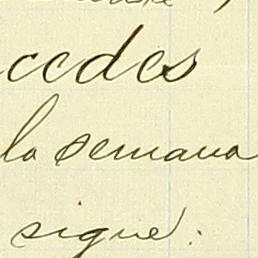 cedes
la semana
sigue: